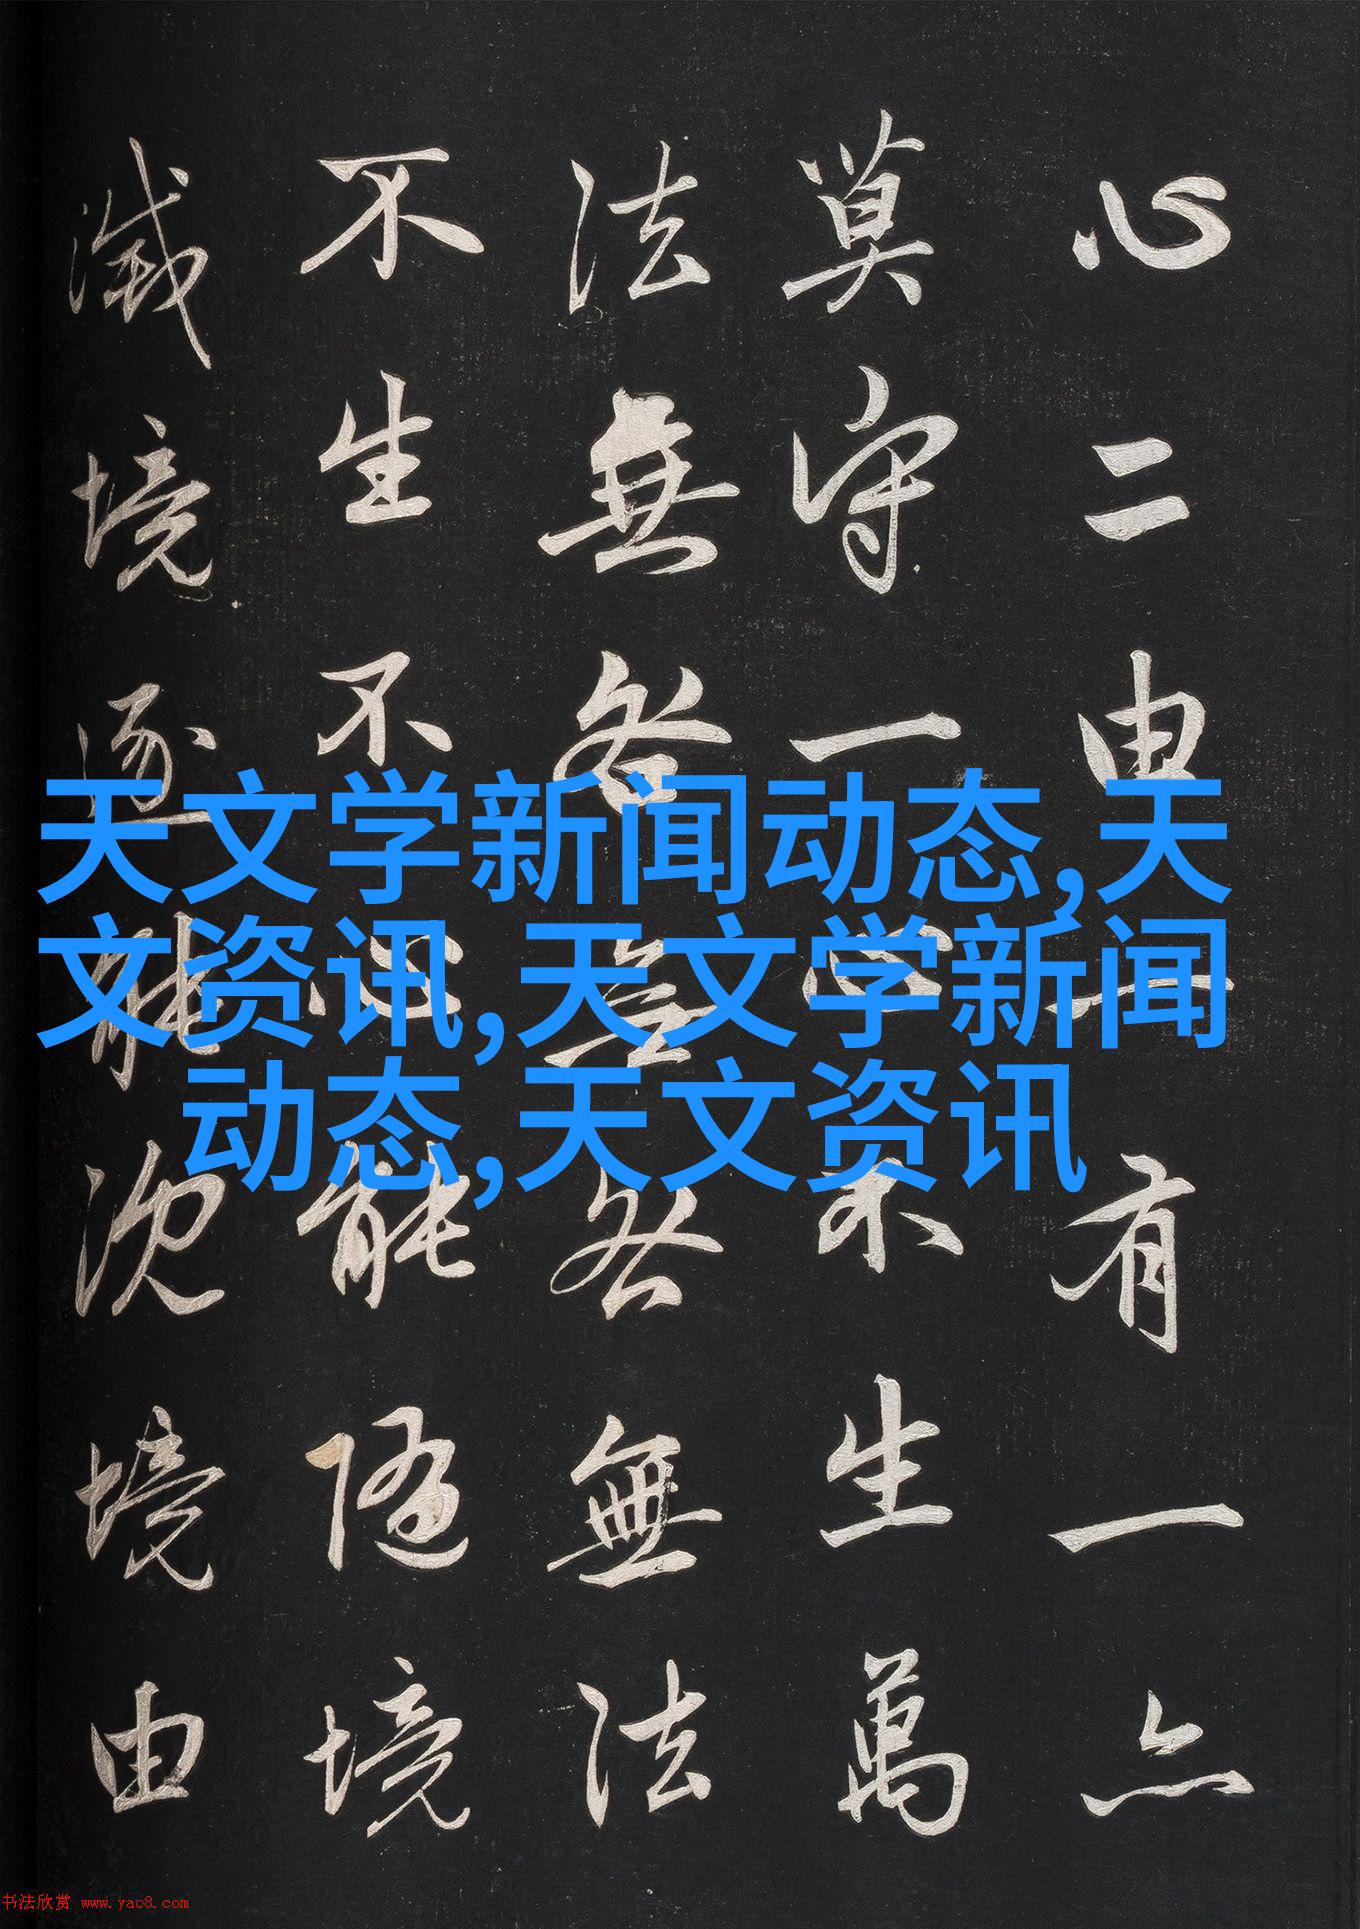 心二由一有一亦
莫守一心不生萬
法無咎無咎無法
不生不心能隨境
滅境逐能沈境由
天文学新闻动态,天
文资讯,天文学新闻
动态,天文资讯
书法欣赏 www.yac8.com